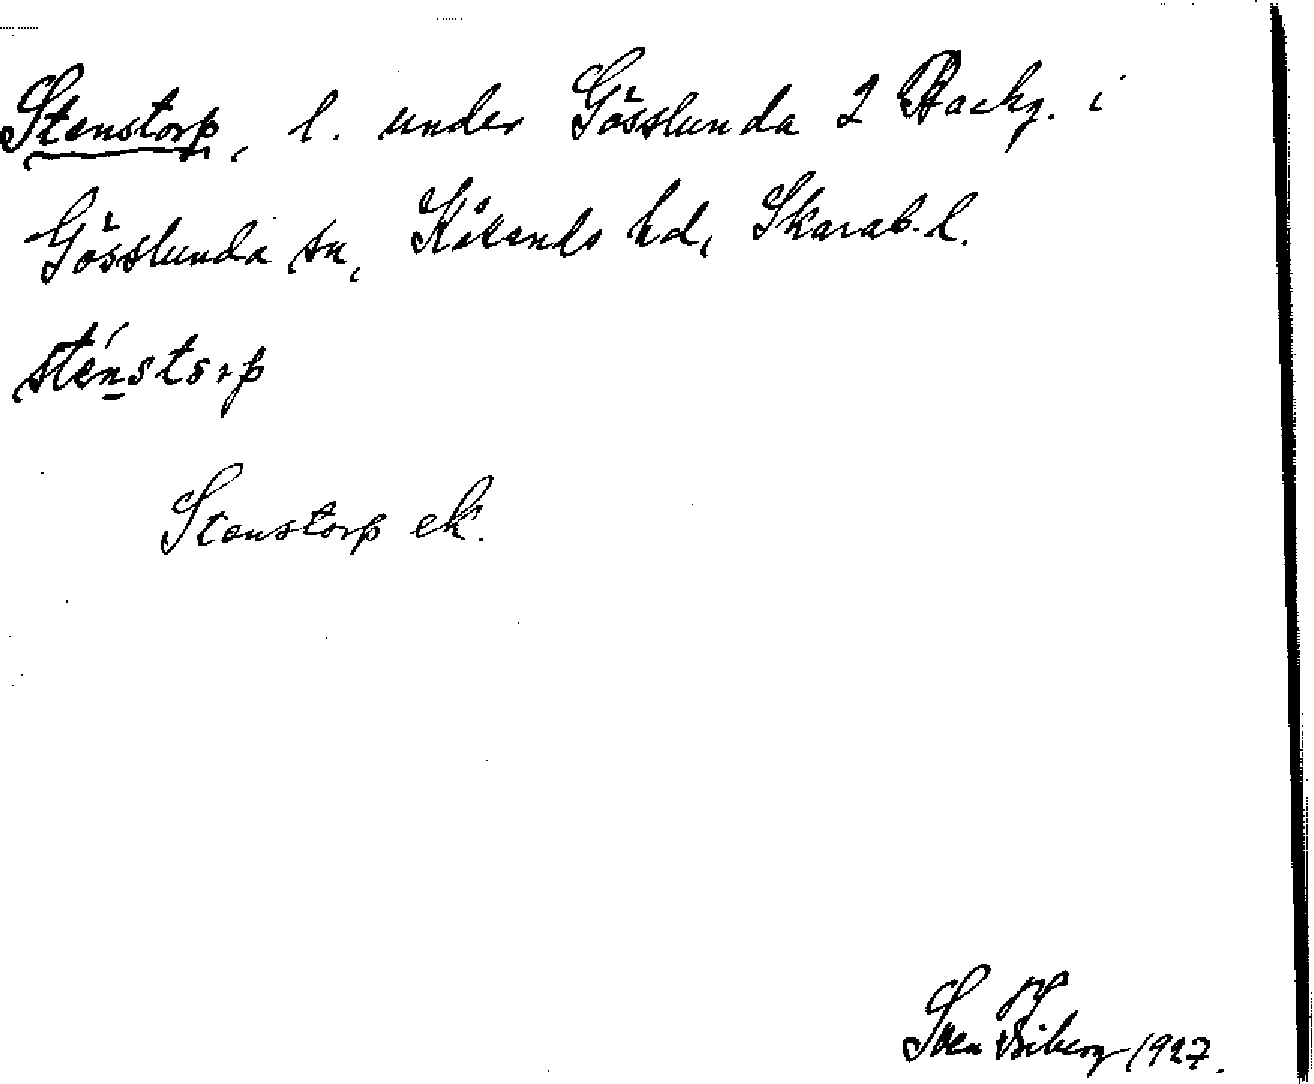 Stenstorp, l. under Gösslunda 2 Backg. i
Gösslunda sn, Kålands hd, Skarab. l.
sténstorp
Stenstorp ek.
Sven Biberg 1927.